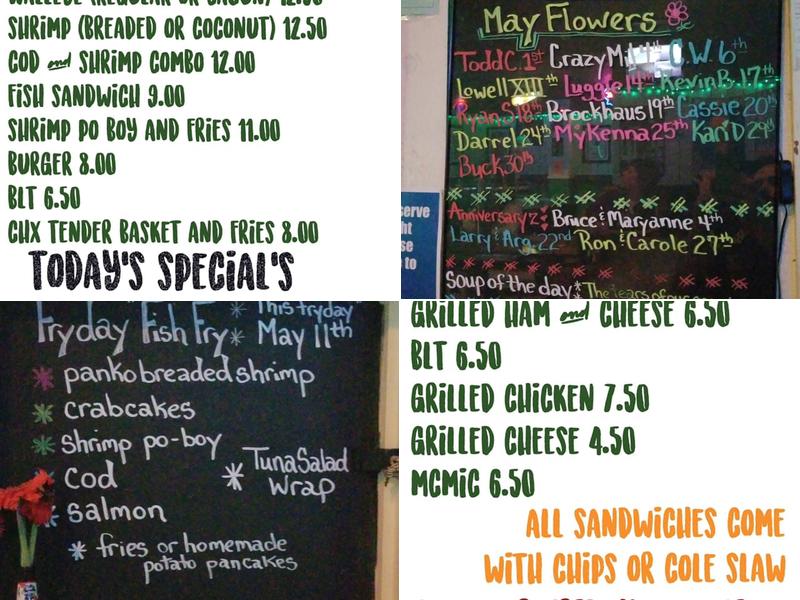 SHRIMP (BREADED OR COCONUT) 12.50
COD and SHRIMP COMBO 12.00
FISH SANDWICH 9.00
SHRIMP PO BOY AND FRIES 11.00
BURGER 8.00
BLT 6.50
CHX TENDER BASKET AND FRIES 8.00
TODAY'S SPECIAL'S
May Flowers
Todd C. 1st Crazy C.W. 6th
Lowell XIII th Luggie 14th Kevin B. 17th
Ryan S 18th Brockhaus 19th Cassie 20th
Darrel 24th Mykenna 25th Kari D 29th
Buck 30th
Anniversaryz Bruce & Maryanne 4th
Larry & Arg. 22nd Ron & Carole 27th
Soup of the day* The tears of
serve
ht
se
to
"This fryday"
Fryday Fish Fry * May 11th
* panko breaded shrimp
* crabcakes
* shrimp po-boy
* Tuna Salad Wrap
* Cod
* salmon
* fries or homemade
potato pancakes
GRILLED HAM and CHEESE 6.50
BLT 6.50
GRILLED CHICKEN 7.50
GRILLED CHEESE 4.50
MCMIC 6.50
ALL SANDWICHES COME
WITH CHIPS OR COLE SLAW